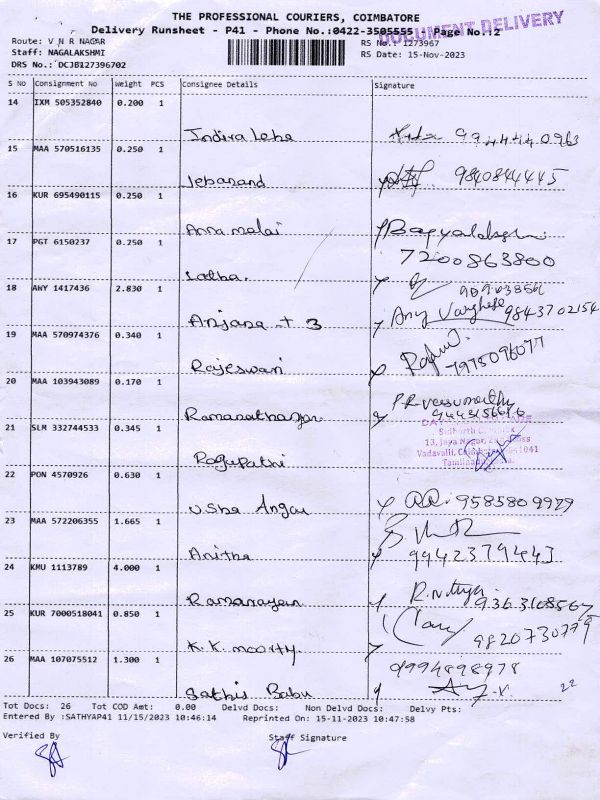 THE PROFESSIONAL COURIERS, COIMBATORE
Delivery Runsheet - P41 - Phone No:0422-3505555 Page No:2
DOCUMENT DELIVERY
Route: V N R NAGAR
RS No: 1273967
Staff: NAGALAKSHMI
RS Date: 15-Nov-2023
DRS No.: DCJB127396702
S No Consignment No Weight PCS Consignee Details Signature
14 IXM 505352840 0.200 1
Indira lekha 9944440963
15 MAA 570516135 0.250 1
Jebanand 9840844445
16 KUR 695490115 0.250 1
Annamalai Bagyalakshmi
17 PGT 6150237 0.250 1
7200863800
Latha
18 AWY 1417436 2.830 1
Anjana + 3 Any Varghese 9843702154
19 MAA 570974376 0.340 1
Rajeswari 7975096077
20 MAA 103943089 0.170 1
Ramanathan
21 SLM 332744533 0.345 1
13, Jaya Nagar,
Vadavalli,
Ragupathi
22 PON 4570926 0.630 1
Usha Angan 9585809979
23 MAA 572206355 1.665 1
Anitha 9942379443
24 KMU 1113789 4.000 1
Ramanayan R. Nithya 9363168567
25 KUR 7000518041 0.850 1
K.K. moorthy 9820730779
26 MAA 107075512 1.300 1
9994898978
Sathis Babu 22
Tot Docs: 26 Tot COD Amt: 0.00 Delvd Docs: Non Delvd Docs: Delvy Pts:
Entered By :SATHYAP41 11/15/2023 10:46:14 Reprinted On: 15-11-2023 10:47:58
Verified By Staff Signature